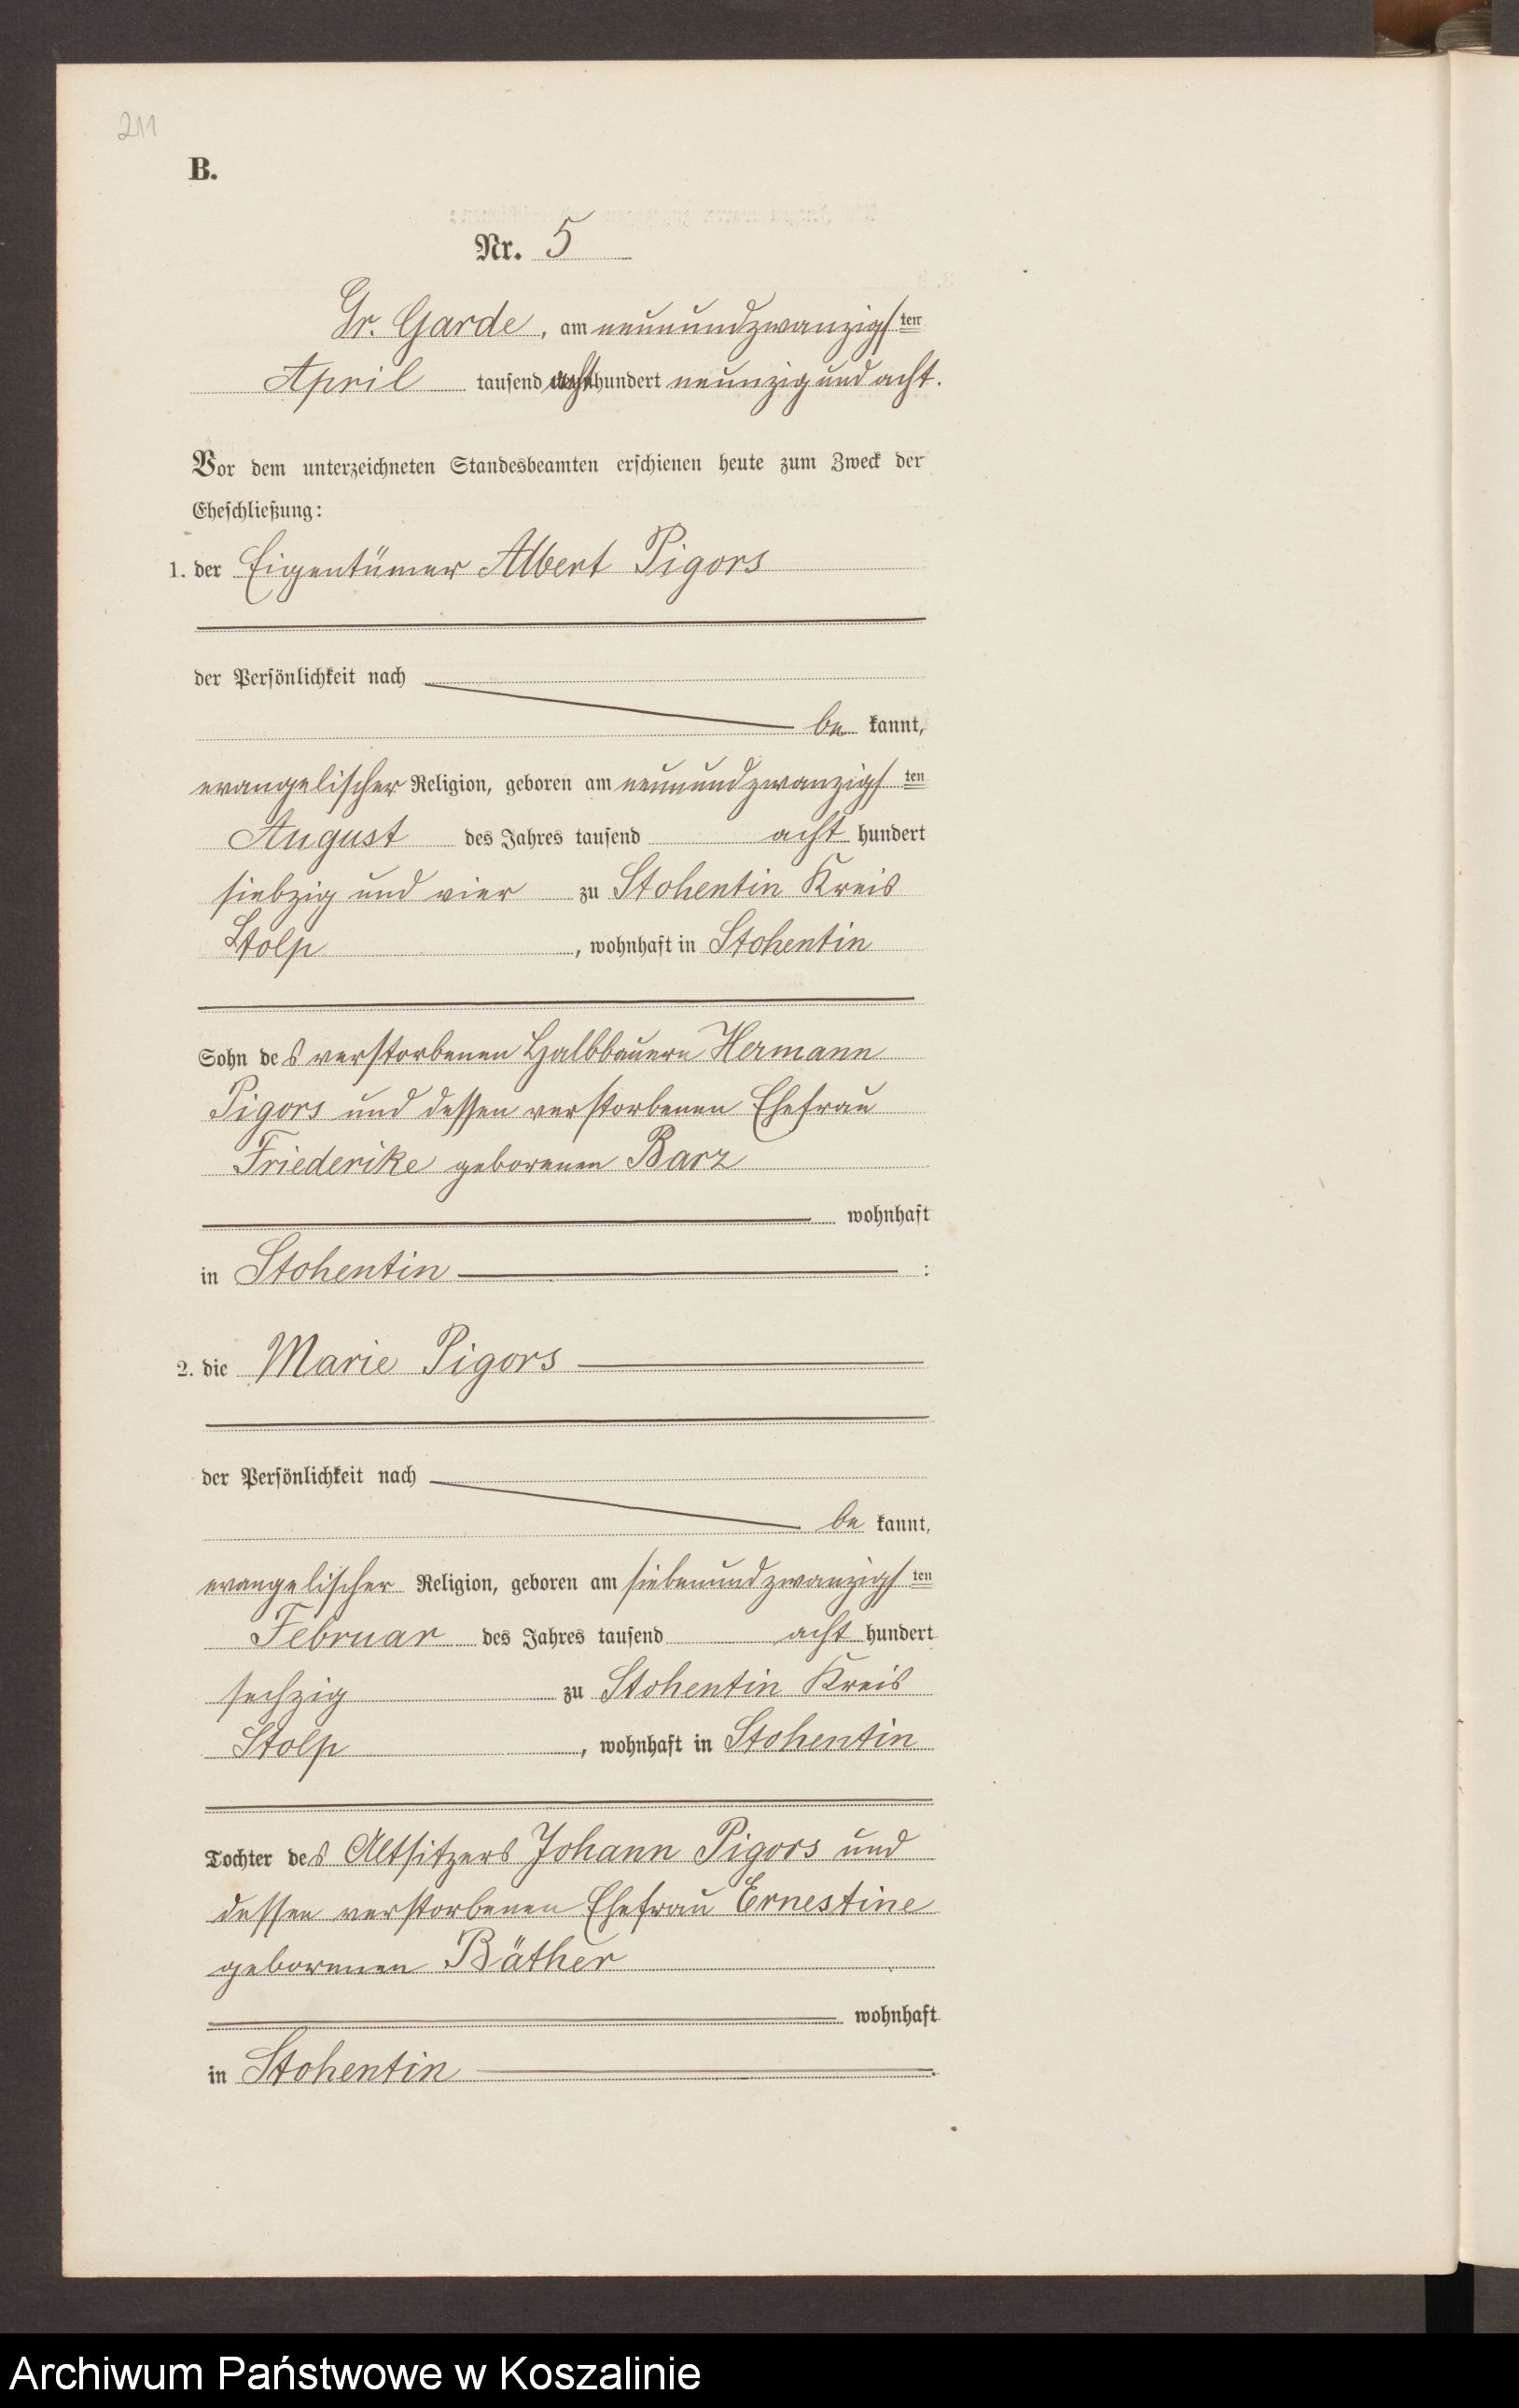 211
B.
Nr. 5
Gr. Garde, am neunundzwanzigsten
April tausend achthundert neunzig und acht.
Vor dem unterzeichneten Standesbeamten erschienen heute zum Zweck der
Eheschließung:
1. der Eigentümer Albert Pigors
der Persönlichkeit nach
be kannt,
evangelischer Religion, geboren am neunundzwanzigsten
August des Jahres tausend acht hundert
siebzig und vier zu Stohentin Kreis
Stolp, wohnhaft in Stohentin
Sohn des verstorbenen Halbbauern Hermann
Pigors und dessen verstorbenen Ehefrau
Friederike geborenen Barz
wohnhaft
in Stohentin :
2. die Marie Pigors
der Persönlichkeit nach
be kannt,
evangelischer Religion, geboren am siebenundzwanzigsten
Februar des Jahres tausend acht hundert
sechzig zu Stohentin Kreis
Stolp, wohnhaft in Stohentin
Tochter des Altsitzers Johann Pigors und
dessen verstorbenen Ehefrau Ernestine
geborenen Bäther
wohnhaft
in Stohentin.
Archiwum Państwowe w Koszalinie